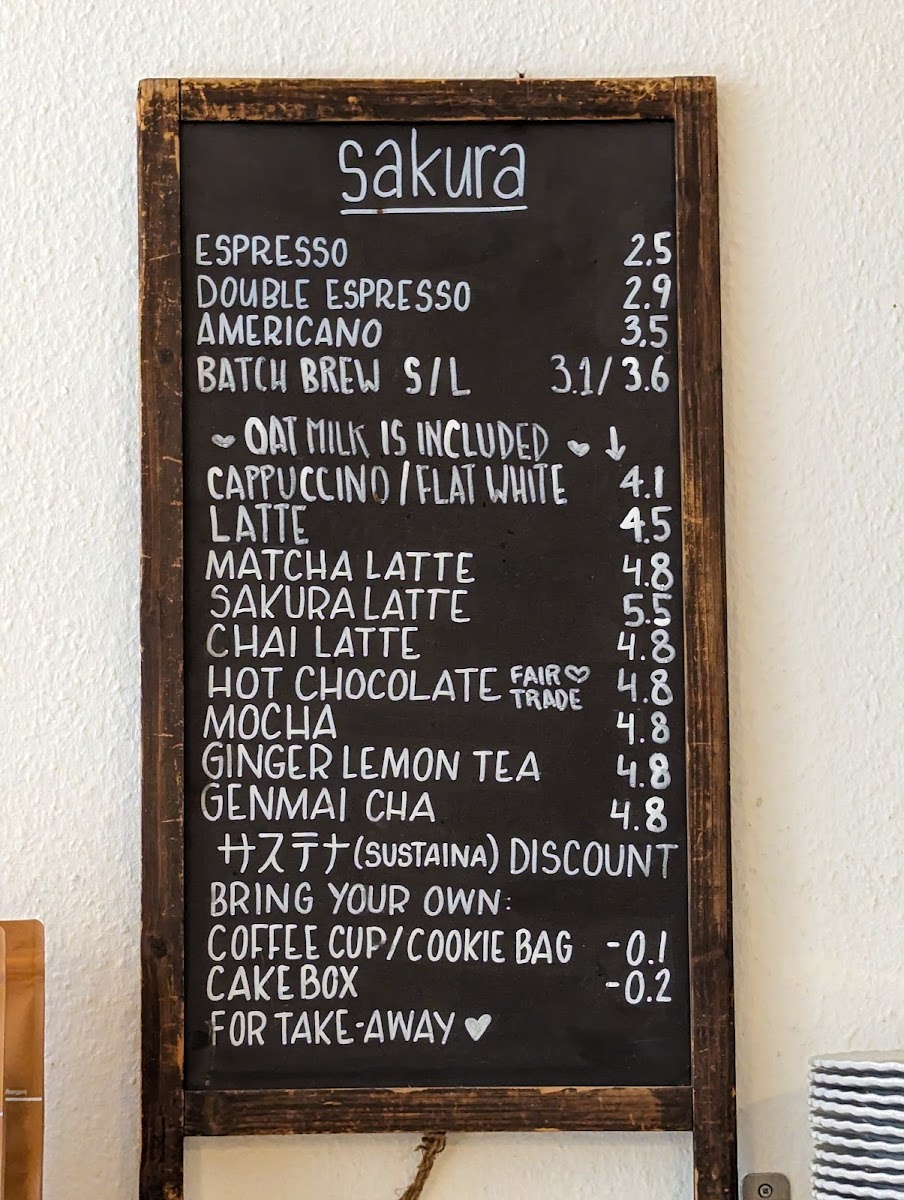 sakura
ESPRESSO 2.5
DOUBLE ESPRESSO 2.9
AMERICANO 3.5
BATCH BREW S/L 3.1/3.6
OAT MILK IS INCLUDED ↓
CAPPUCCINO/FLAT WHITE 4.1
LATTE 4.5
MATCHA LATTE 4.8
SAKURA LATTE 5.5
CHAI LATTE 4.8
HOT CHOCOLATE FAIR TRADE 4.8
MOCHA 4.8
GINGER LEMON TEA 4.8
GENMAI CHA 4.8
サステナ(SUSTAINA) DISCOUNT
BRING YOUR OWN:
COFFEE CUP/COOKIE BAG -0.1
CAKE BOX -0.2
FOR TAKE-AWAY